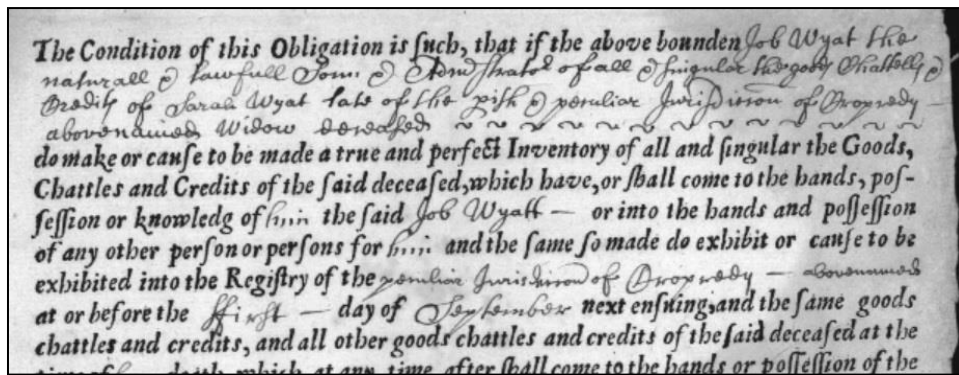 The Condition of this Obligation is ſuch, that if the above bounden Job Wyat the
naturall & lawfull Sonn & Admstrator of all & singular the goods Chattells &
Credits of Sarah Wyat late of the pish & peculiar Jurisdiccon of Cropredy —
abovenamed Widow deceased ~ ~ ~ ~ ~ ~ ~ ~ ~ ~ ~ ~ ~ ~
do make or cauſe to be made a true and perfect Inventory of all and ſingular the Goods,
Chattles and Credits of the ſaid deceaſed, which have, or ſhall come to the hands, poſ-
ſeſſion or knowledg of him the ſaid Job Wyatt — or into the hands and poſſeſſion
of any other perſon or perſons for him and the ſame ſo made do exhibit or cauſe to be
exhibited into the Regiſtry of the peculiar Jurisdiccon of Cropredy — abovenamed
at or before the ffirst — day of September next enſuing, and the ſame goods
chattles and credits, and all other goods chattles and credits of the ſaid deceaſed at the
time of death which at any time after ſhall come to the hands or poſſeſſion of the